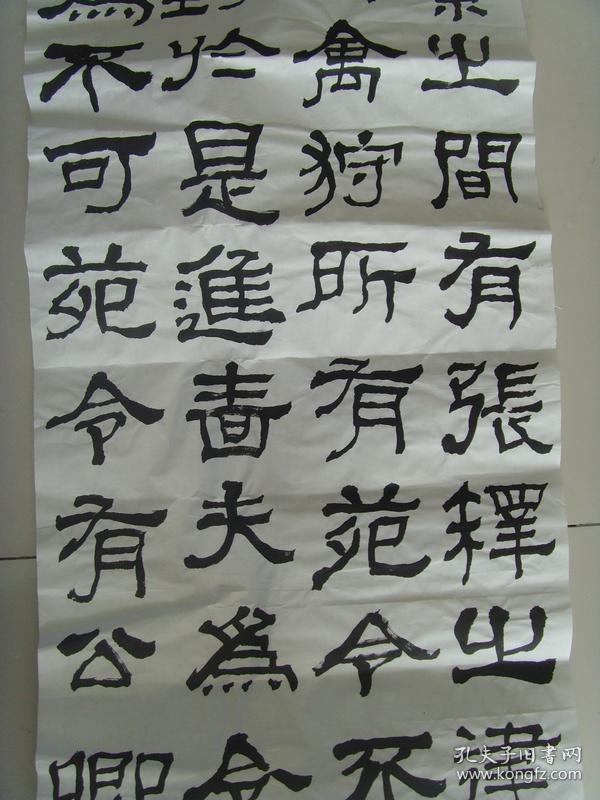 景之間有張釋之
禽狩所有苑令不
對於是進嗇夫爲令
爲不可苑令有公卿
孔夫子旧書网
www.kongfz.com